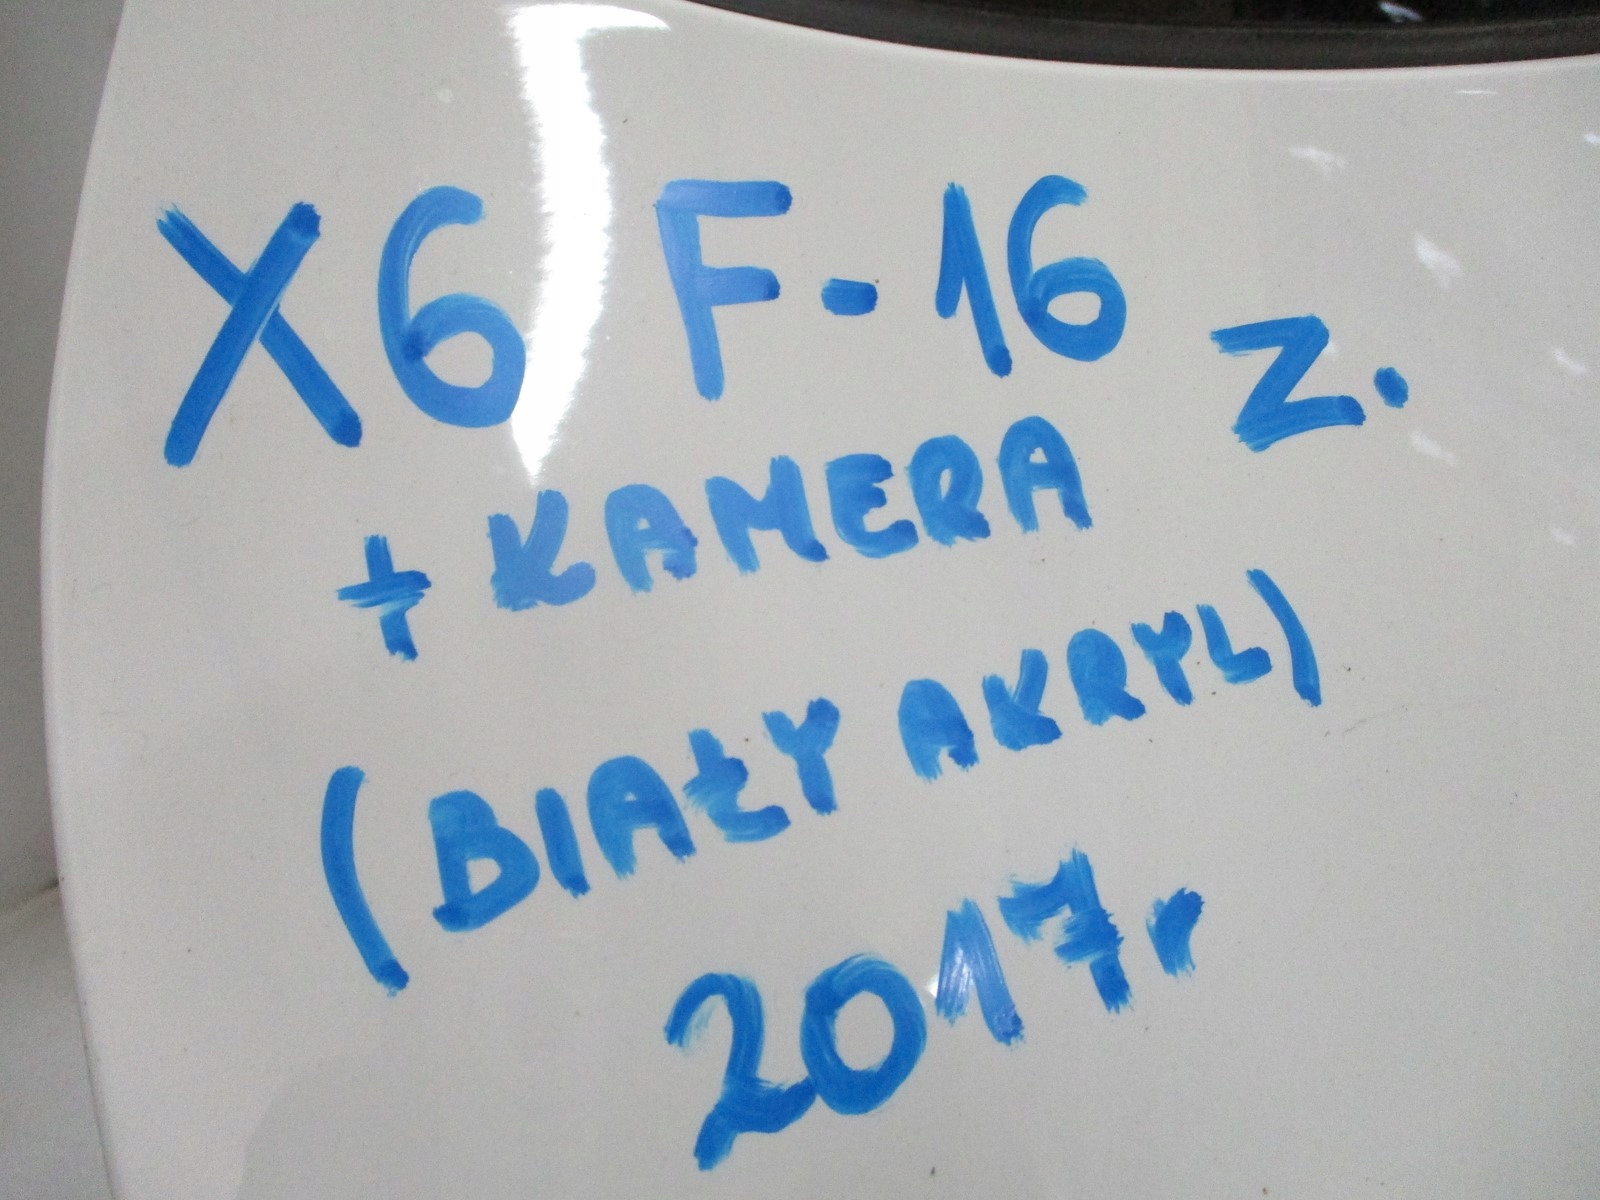 X6 F-16 Z.
+ KAMERA
(BIAŁY AKRYL)
2017r